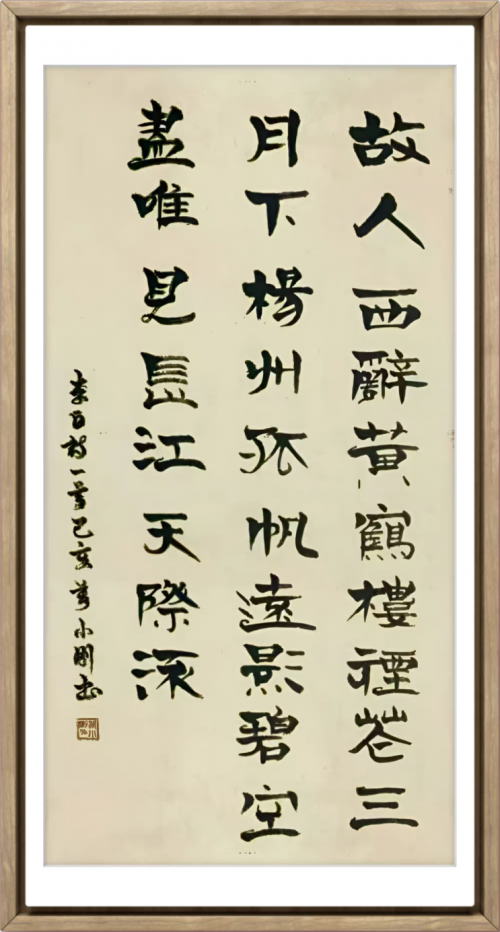 故人西辭黃鶴樓煙花三
月下楊州孤帆遠影碧空
盡唯見長江天際流
李白詩一首己亥小剛书